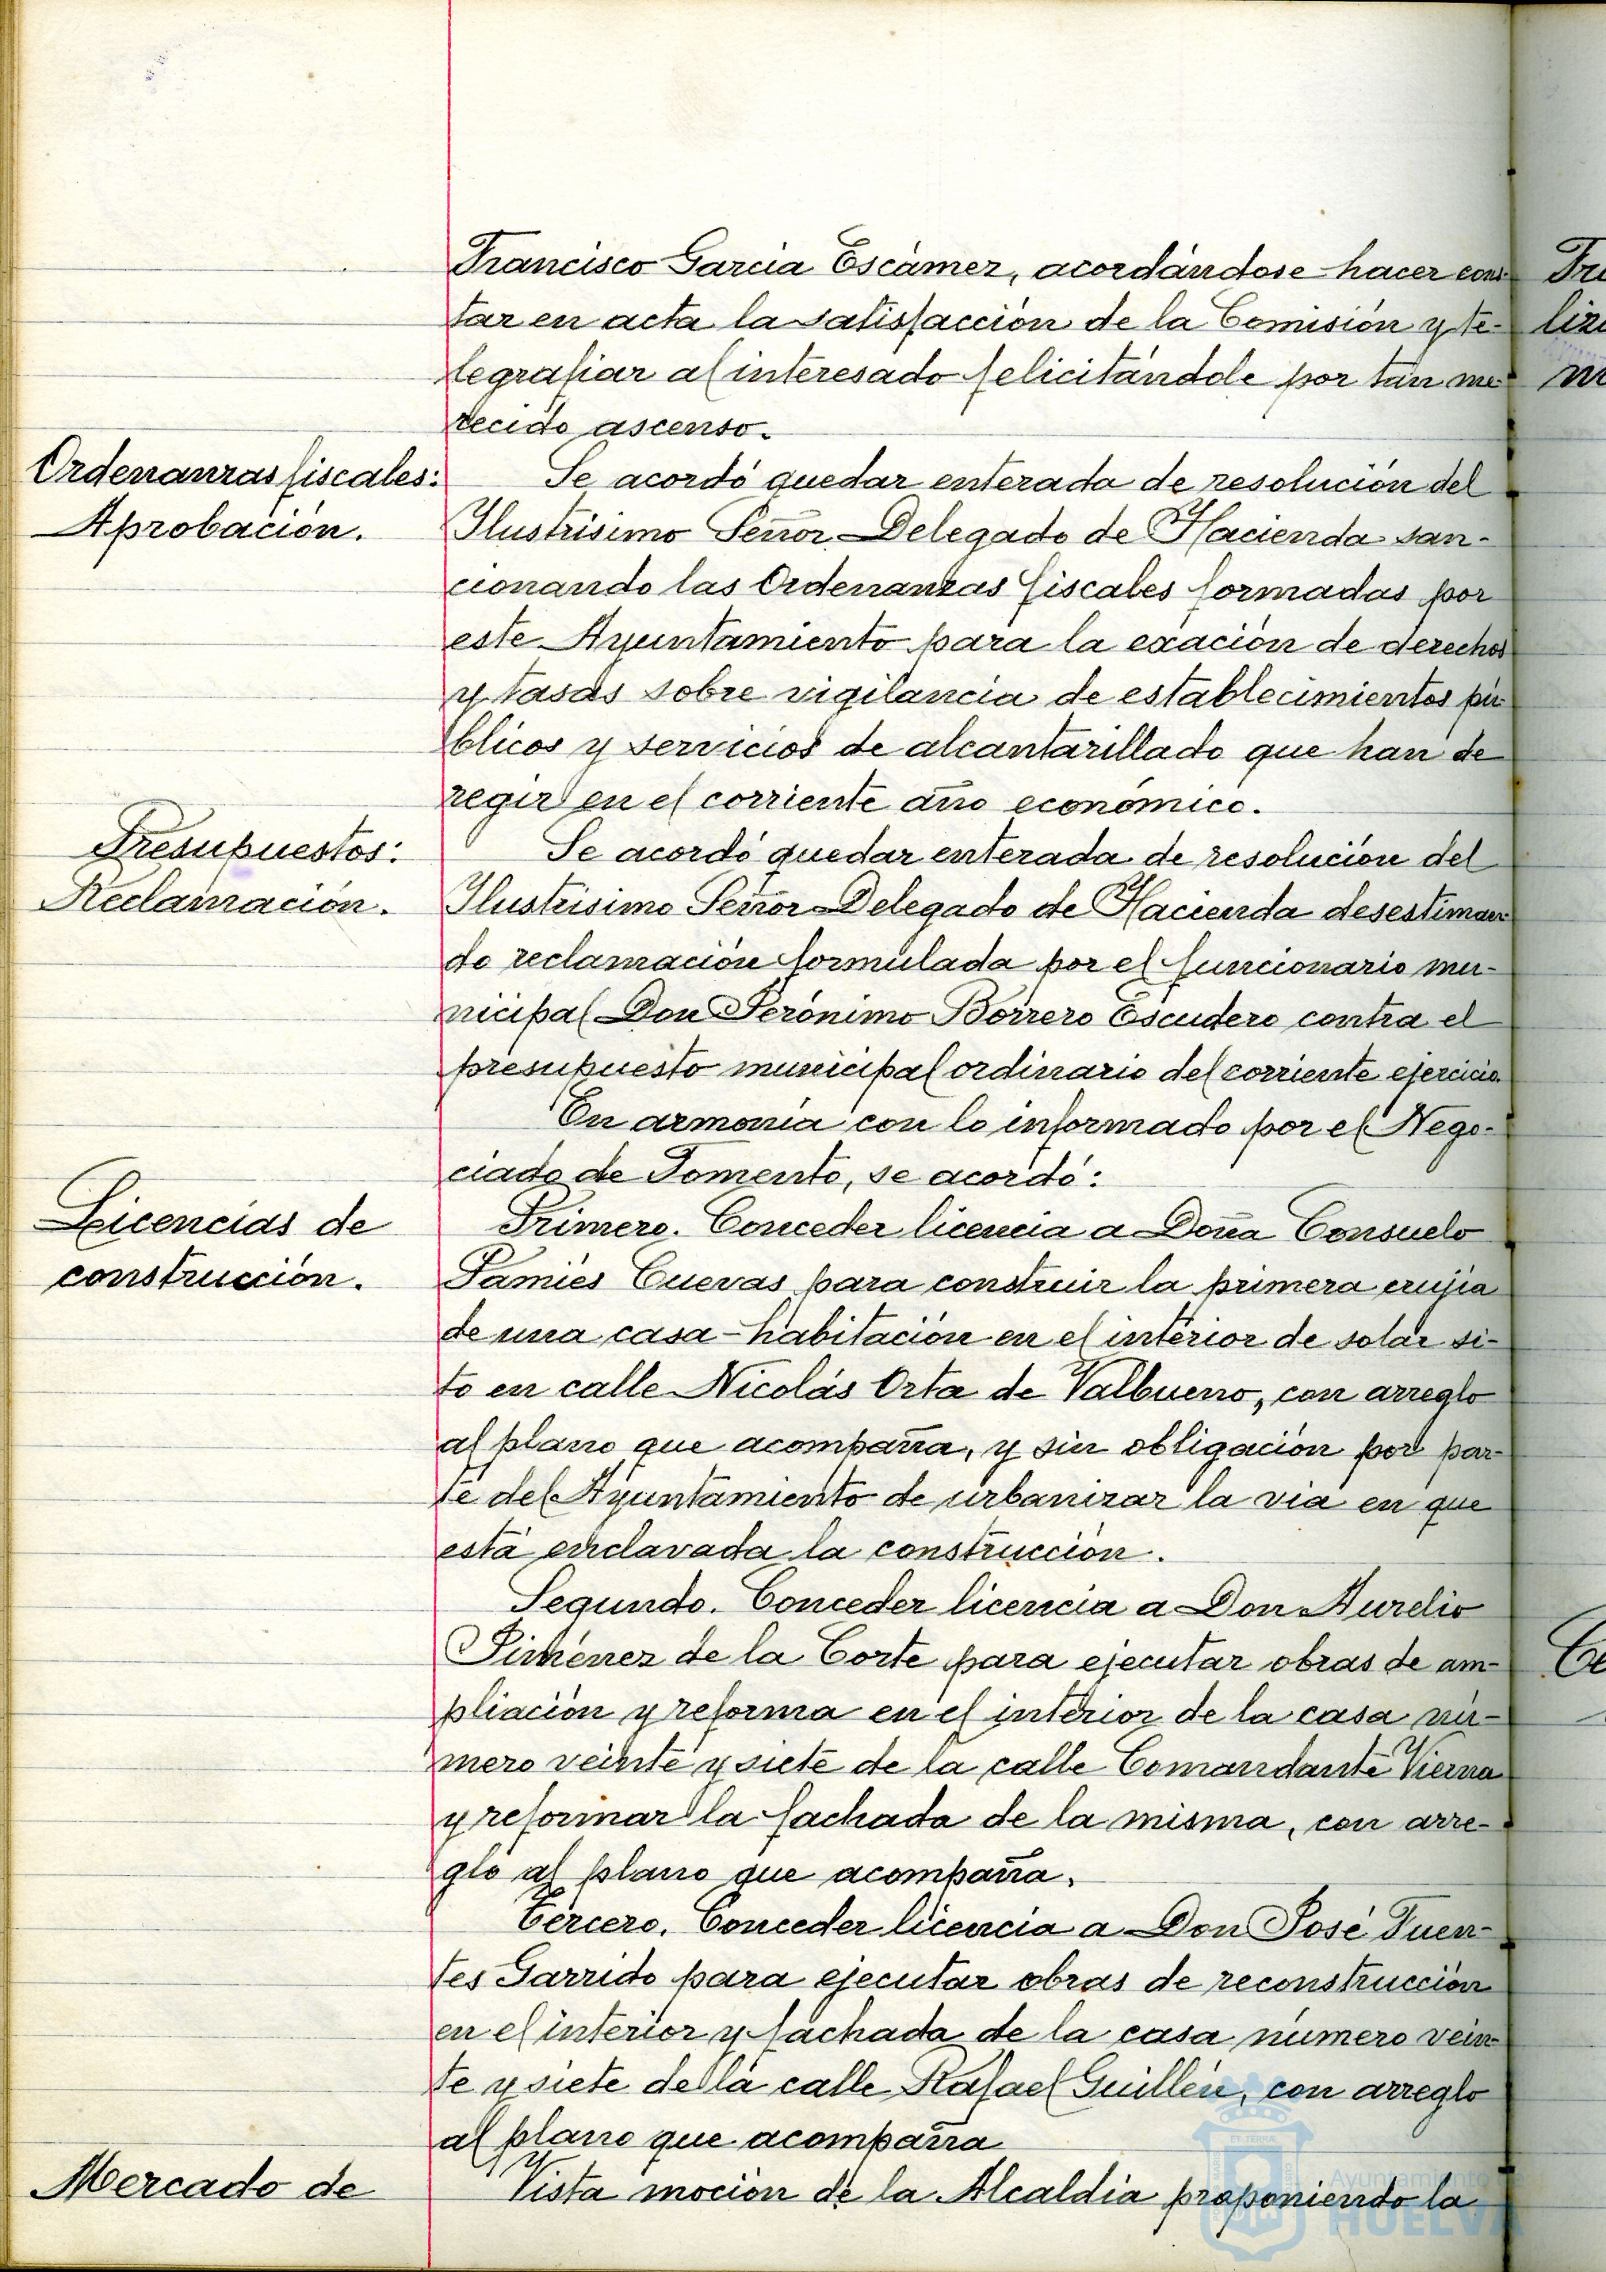 Francisco Garcia Escámez, acordándose hacer cons-
tar en acta la satisfacción de la Comisión y te-
legrafiar al interesado felicitándole por tan me-
recido ascenso.
Ordenanzas fiscales:
Aprobación.
Se acordó quedar enterada de resolución del
Ilustrísimo Señor Delegado de Hacienda san-
cionando las Ordenanzas fiscales formadas por
este Ayuntamiento para la exación de derechos
y tasas sobre vigilancia de establecimientos pú-
blicos y servicios de alcantarillado que han de
regir en el corriente año económico.
Presupuestos:
Reclamación.
Se acordó quedar enterada de resolución del
Ilustrísimo Señor Delegado de Hacienda desestiman-
do reclamación formulada por el funcionario mu-
nicipal Don Jerónimo Borrero Escudero contra el
presupuesto municipal ordinario del corriente ejercicio.
En armonía con lo informado por el Nego-
ciado de Fomento, se acordó:
Licencias de
construcción.
Primero. Conceder licencia a Doña Consuelo
Pamies Cuevas para construir la primera crujía
de una casa-habitación en el interior de solar si-
to en calle Nicolás Orta de Valbueno, con arreglo
al plano que acompaña, y sin obligación por par-
te del Ayuntamiento de urbanizar la vía en que
está enclavada la construcción.
Segundo. Conceder licencia a Don Aurelio
Jiménez de la Corte para ejecutar obras de am-
pliación y reforma en el interior de la casa nú-
mero veinte y siete de la calle Comandante Vierna
y reformar la fachada de la misma, con arre-
glo al plano que acompaña.
Tercero. Conceder licencia a Don José Fuen-
tes Garrido para ejecutar obras de reconstrucción
en el interior y fachada de la casa número vein-
te y siete de la calle Rafael Guillén, con arreglo
al plano que acompaña
Mercado de
Vista moción de la Alcaldía proponiendo la
Ayuntamiento de
HUELVA